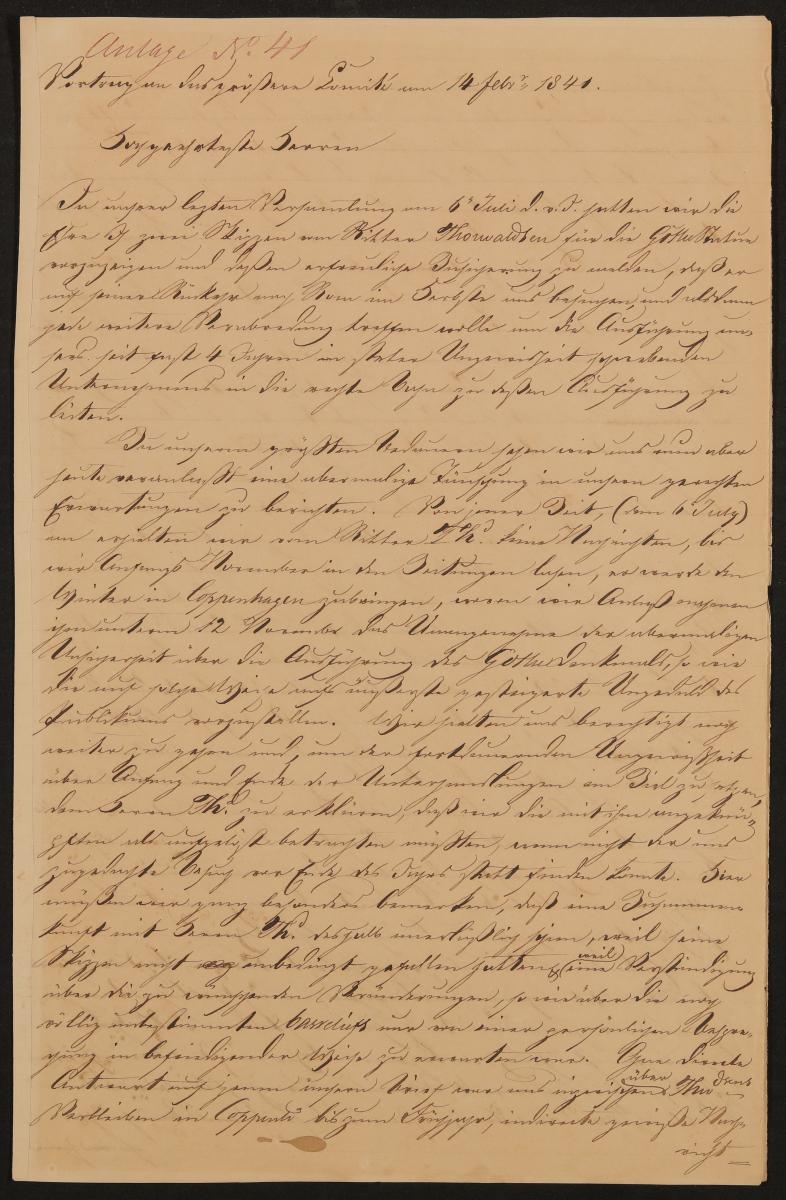 Anlage No. 41
Vortrag an das größere Comité am 14 Febr. 1841.
Hochgeehrteste Herren
In unserer lezten Versammlung am 6n Juli d. v. J. hatten wir die
Ehre zwei Skizzen von Ritter Thorwaldsen für die Göthe Statue
vorzuzeigen und deßen erfreuliche Zusicherung zu melden, daß er
auf seiner Rückkehr nach Rom im Herbste uns besuchen und alsdann
jede weitere Verabredung treffen wolle um die Ausführung un-
sers seit fast 4 Jahren in steter Ungewisheit schwebenden
Unternehmens in die rechte Bahn zu deßen Ausführung zu
leiten.
Zu unserem größten Bedauern sehen wir uns nun aber
heute veranlaßt eine abermalige Täuschung in unsern gerechten
Erwartungen zu berichten. Von jener Zeit (dem 6 July)
an erhielten wir vom Ritter Thd. keine Nachrichten, bis
wir Anfangs November in den Zeitungen lasen, er werde den
Winter in Coppenhagen zubringen, wovon wir Anlaß nahmen
ihm unterm 12 November das Unangenehme der abermaligen
Unsicherheit über die Ausführung des Göthe Denkmals, so wie
die auf solche Weise aufs äußerste gesteigerte Ungeduld des
Publikums vorzustellen. Wir hielten uns berechtigt noch
weiter zu gehen und, um der fortdauernden Ungewißheit
über Anfang und Ende der Unterhandlungen ein Ziel zu setzen,
dem Herrn Thd. zu erklären, daß wir die mit ihm angeknü-
pften als aufgelößt betrachten müßten, wenn nicht der uns
zugedachte Besuch vor Ende des Jahres statt finden könnte. Hier
müßen wir ganz besonders bemerken, daß eine Zusammen-
kunft mit Herrn Thd. deshalb unerläßlich schien, weil seine
Skizzen nicht unbedingt gefallen hatten & weil eine Verständigung
über die zu wünschenden Veränderungen, so wie über die noch
völlig unbestimmten basreliefs nur von einer persönlichen Bespre-
chung in befriedigender Weise zu erwarten war. Eine directe
Antwort auf jenen unsern Brief war uns inzwischen über Thd
Verbleiben in Coppenh bis zum Frühjahr, indirecte gewisse Nach-
richt